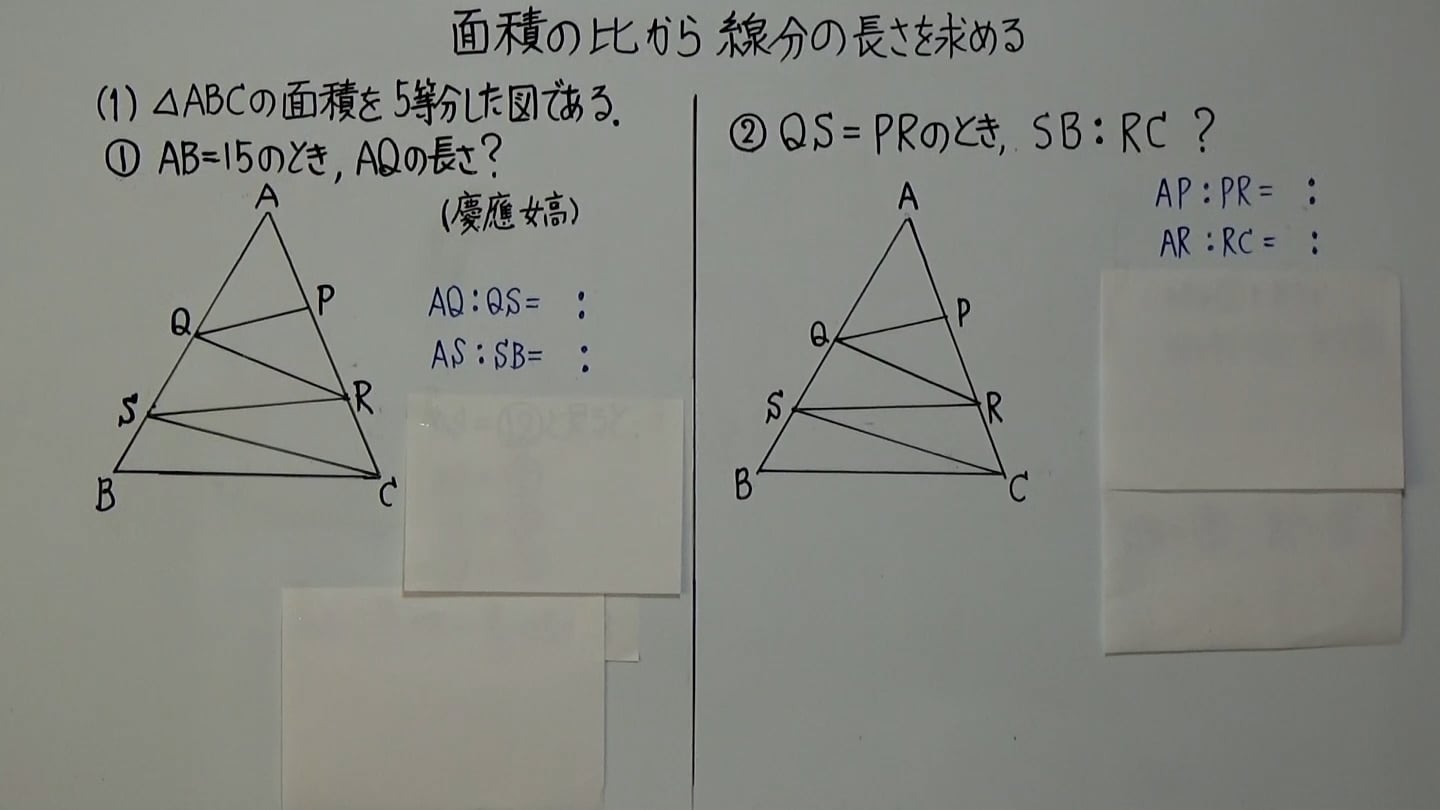 面積の比から線分の長さを求める
(1) △ABCの面積を5等分した図である.
① AB=15のとき, AQの長さ?
(慶應女高)
A
P
Q
R
S
B
C
AQ:QS= :
AS:SB= :
② QS=PRのとき, SB:RC ?
AP:PR= :
AR:RC= :
A
P
Q
R
S
B
C